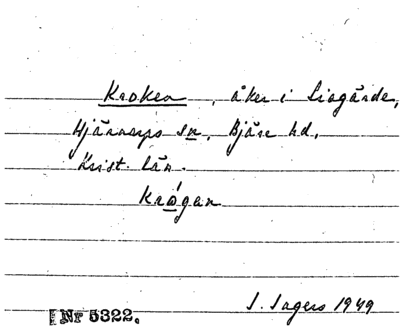 Kroken, åker i Liagärde,
Hjärnarps sn, Bjäre hd,
Krist. län.
Krógan
J. Sagers 1949
[Nr 5322.